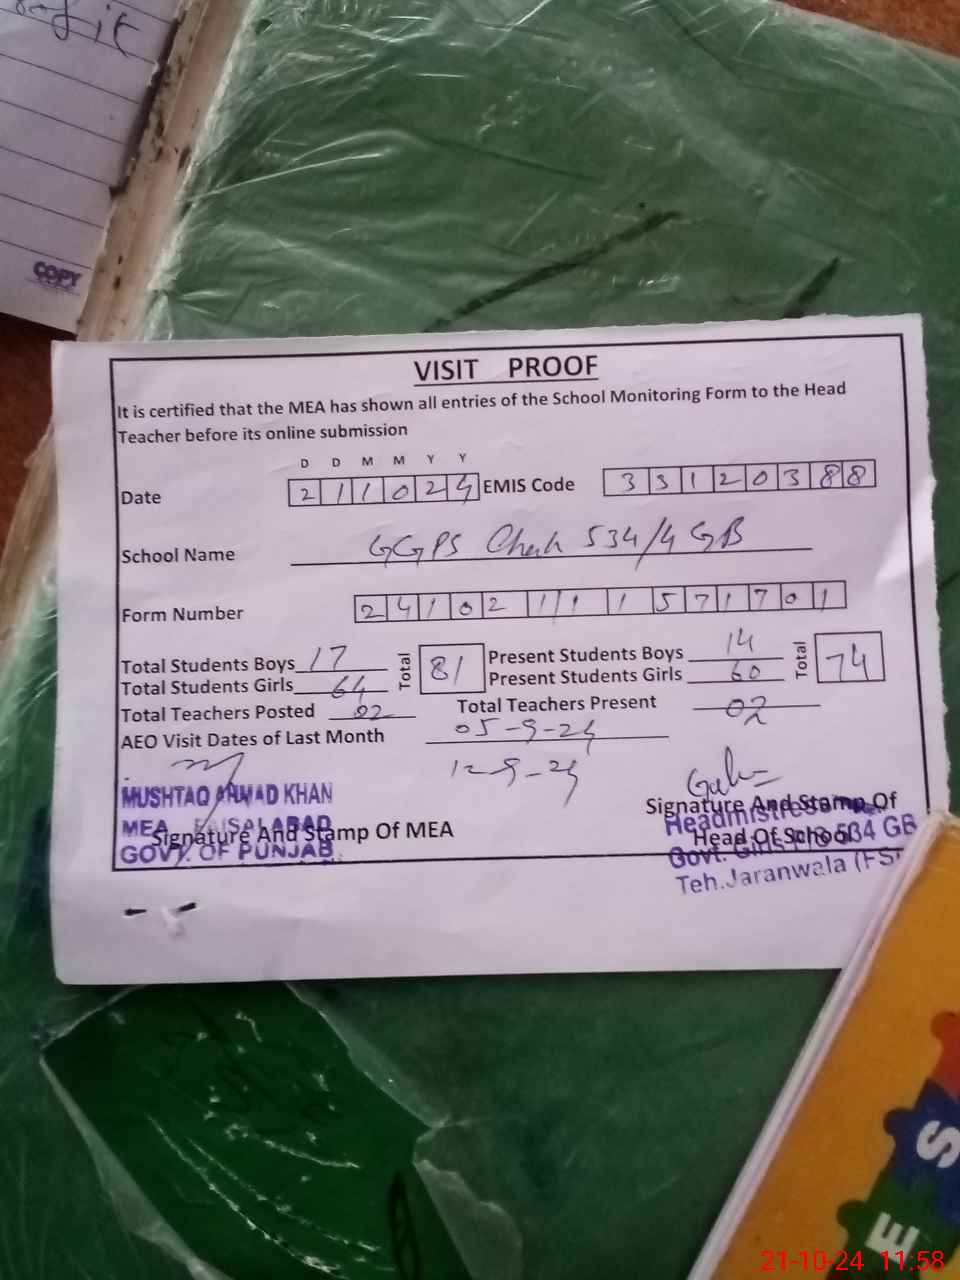 COPY
VISIT PROOF
It is certified that the MEA has shown all entries of the School Monitoring Form to the Head
Teacher before its online submission
D D M M Y Y
Date 2 1 1 0 2 4 EMIS Code 3 3 1 2 0 3 8 8
School Name GGPS Chak 534/4 GB
Form Number 2 4 1 0 2 1 1 1 1 5 7 1 7 0 1
Total Students Boys 17 Total 81 Present Students Boys 14 Total 74
Total Students Girls 64 Present Students Girls 60
Total Teachers Posted 02 Total Teachers Present 02
AEO Visit Dates of Last Month 05-9-24
12-9-24
MUSHTAQ AHMAD KHAN
MEA FAISALABAD
GOVT. OF PUNJAB
Signature And Stamp Of MEA
Signature And Stamp Of
Head Of School
Headmistress
Govt. Girls P/S 534 GB
Teh.Jaranwala (FS
S
E
21-10-24 11:58